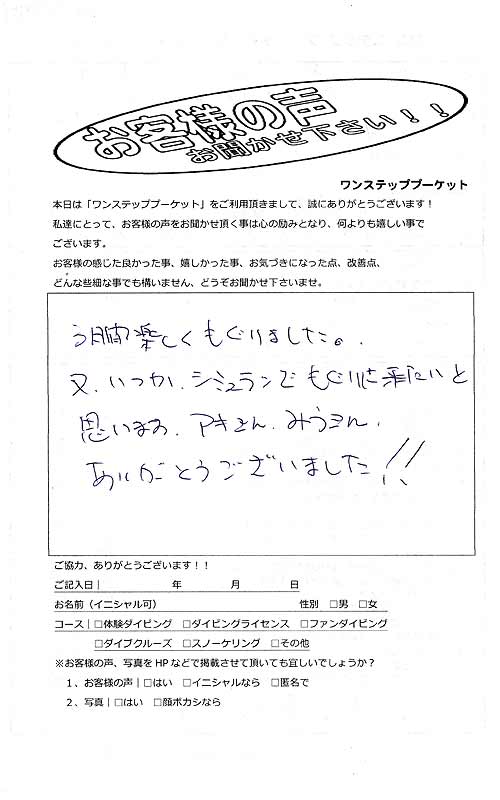 お客様の声
お聞かせ下さい！！
ワンステッププーケット
本日は「ワンステッププーケット」をご利用頂きまして、誠にありがとうございます！
私達にとって、お客様の声をお聞かせ頂く事は心の励みとなり、何よりも嬉しい事で
ございます。
お客様の感じた良かった事、嬉しかった事、お気づきになった点、改善点、
どんな些細な事でも構いません、どうぞお聞かせ下さいませ。
楽しくもぐりました。
又、いつか、シミランでもぐりに来たいと
思います。アキさん、みうさん、
ありがとうございました!!
ご協力、ありがとうございます！！
ご記入日｜ 年 月 日
お名前（イニシャル可） 性別 □男 □女
コース｜□体験ダイビング □ダイビングライセンス □ファンダイビング
□ダイブクルーズ □スノーケリング □その他
※お客様の声、写真をHPなどで掲載させて頂いても宜しいでしょうか？
１、お客様の声｜□はい □イニシャルなら □匿名で
２、写真｜□はい □顔ボカシなら